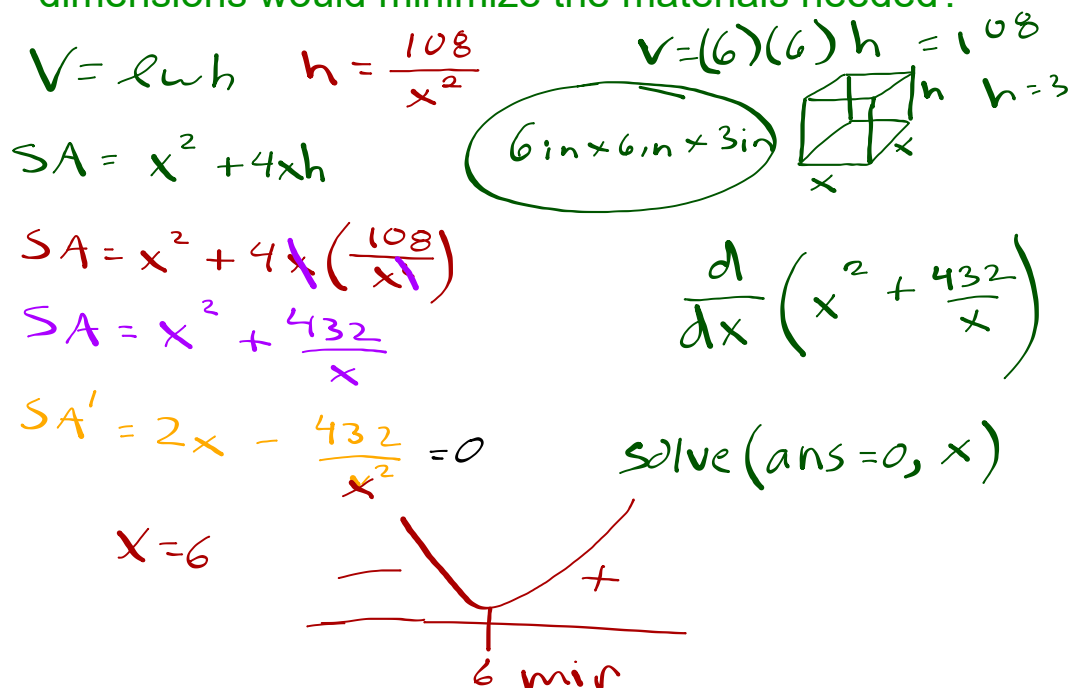 dimensions would minimize the materials needed?
V = lwh
h = 108/x²
V=(6)(6)h = 108
h
h=3
x
x
SA = x² + 4xh
6in x 6in x 3in
SA = x² + 4x(108/x²)
d/dx (x² + 432/x)
SA = x² + 432/x
SA' = 2x - 432/x² = 0
solve(ans=0, x)
x=6
− +
6 min